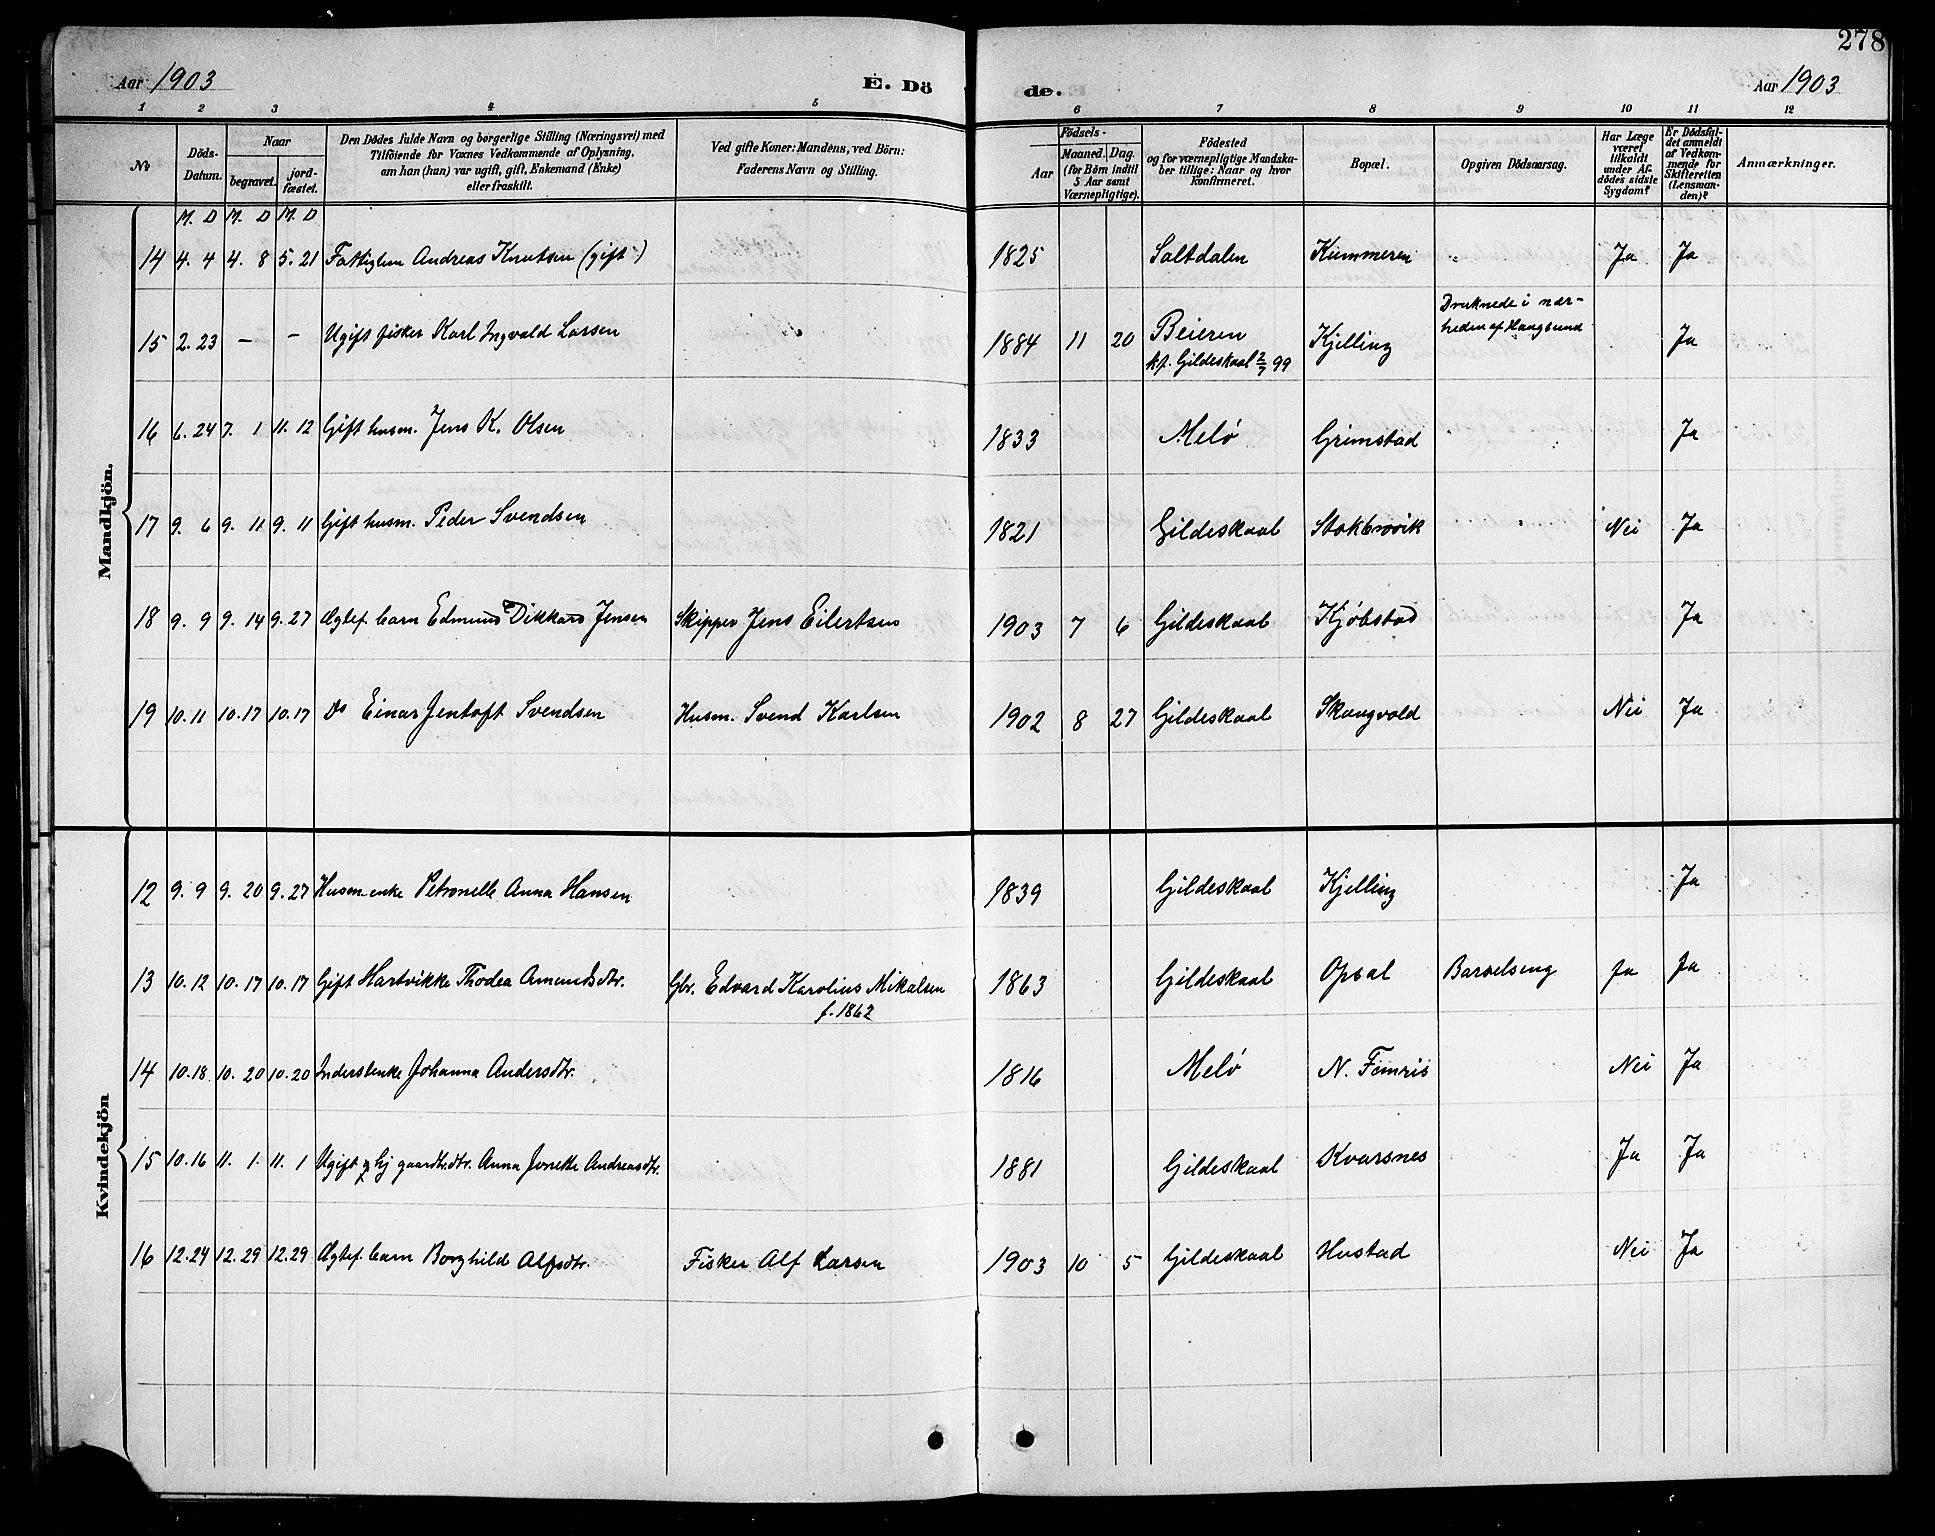 278
Aar 1903 E. Dö de. Aar 1903
1 2 3 4 5 6 7 8 9 10 11 12
No
Döds-
Datum.
Naar
begravet.
jord-
fæstet.
Den Dödes fulde Navn og borgerlige Stilling (Næringsvei) med
Tilföiende for Voxnes Vedkommende af Oplysning,
om han (hun) var ugift, gift, Enkemand (Enke)
eller fraskilt.
Ved gifte Koner: Mandens, ved Börn:
Faderens Navn og Stilling.
Födsels-
Aar
Maaned. Dag.
(for Börn indtil
5 Aar samt
Værnepligtige).
Födested
og for værnepligtige Mandska-
ber tillige: Naar og hvor
konfirmeret.
Bopæl.
Opgiven Dödsaarsag.
Har Læge
været
tilkaldt
under Af-
dödes sidste
Sygdom?
Er Dödsfal-
det anmeldt
af Vedkom-
mende for
Skifteretten
(Lensman-
den)?
Anmærkninger.
Mandkjön.
M. D M. D M. D
14 4. 4 4. 8 5. 21 Fattiglem Andreas Knutsen (gift) 1825 Saltdalen Kummeren Ja Ja
15 2. 23 — — Ugift fisker Karl Ingvald Larsen 1884 11 20 Beieren Kjelling Druknede i nær- Ja
kf. Gildeskaal 2/7 99 heden af Haugsund
16 6. 24 7. 1 11. 12 Gift husm. Jens K. Olsen 1833 Melö Grimstad Ja
17 9. 6 9. 11 9. 11 Gift husm. Peder Svendsen 1821 Gildeskaal Stokbrovik Nei Ja
18 9. 9 9. 14 9. 27 Ægtef. barn Edmund Dikkard Jensen Skipper Jens Eilertsen 1903 7 6 Gildeskaal Kjöbstad Ja
19 10. 11 10. 17 10. 17 Do Einar Jentoft Svendsen Husm. Svend Karlsen 1902 8 27 Gildeskaal Skaugvold Nei Ja
Kvindekjön
12 9. 9 9. 20 9. 27 Husm. enke Petronelle Anna Hansen 1839 Gildeskaal Kjelling Ja
13 10. 12 10. 17 10. 17 Gift Hartvikke Thodea Amundsdtr. Gbr. Edvard Karolius Mikalsen 1863 Gildeskaal Opsal Barselseng Ja Ja
f. 1862
14 10. 18 10. 20 10. 20 Inderstenke Johanna Andersdtr. 1816 Melö N. Femris Nei Ja
15 10. 16 11. 1. 11. 1 Ugift hj gaardbr.dtr. Anna Jonette Andreasdtr. 1881 Gildeskaal Kvarsnes Ja Ja
16 12. 24 12. 29 12. 29 Ægtef. barn Borghild Alfsdtr. Fisker Alf Larsen 1903 10 5 Gildeskaal Hustad Nei Ja